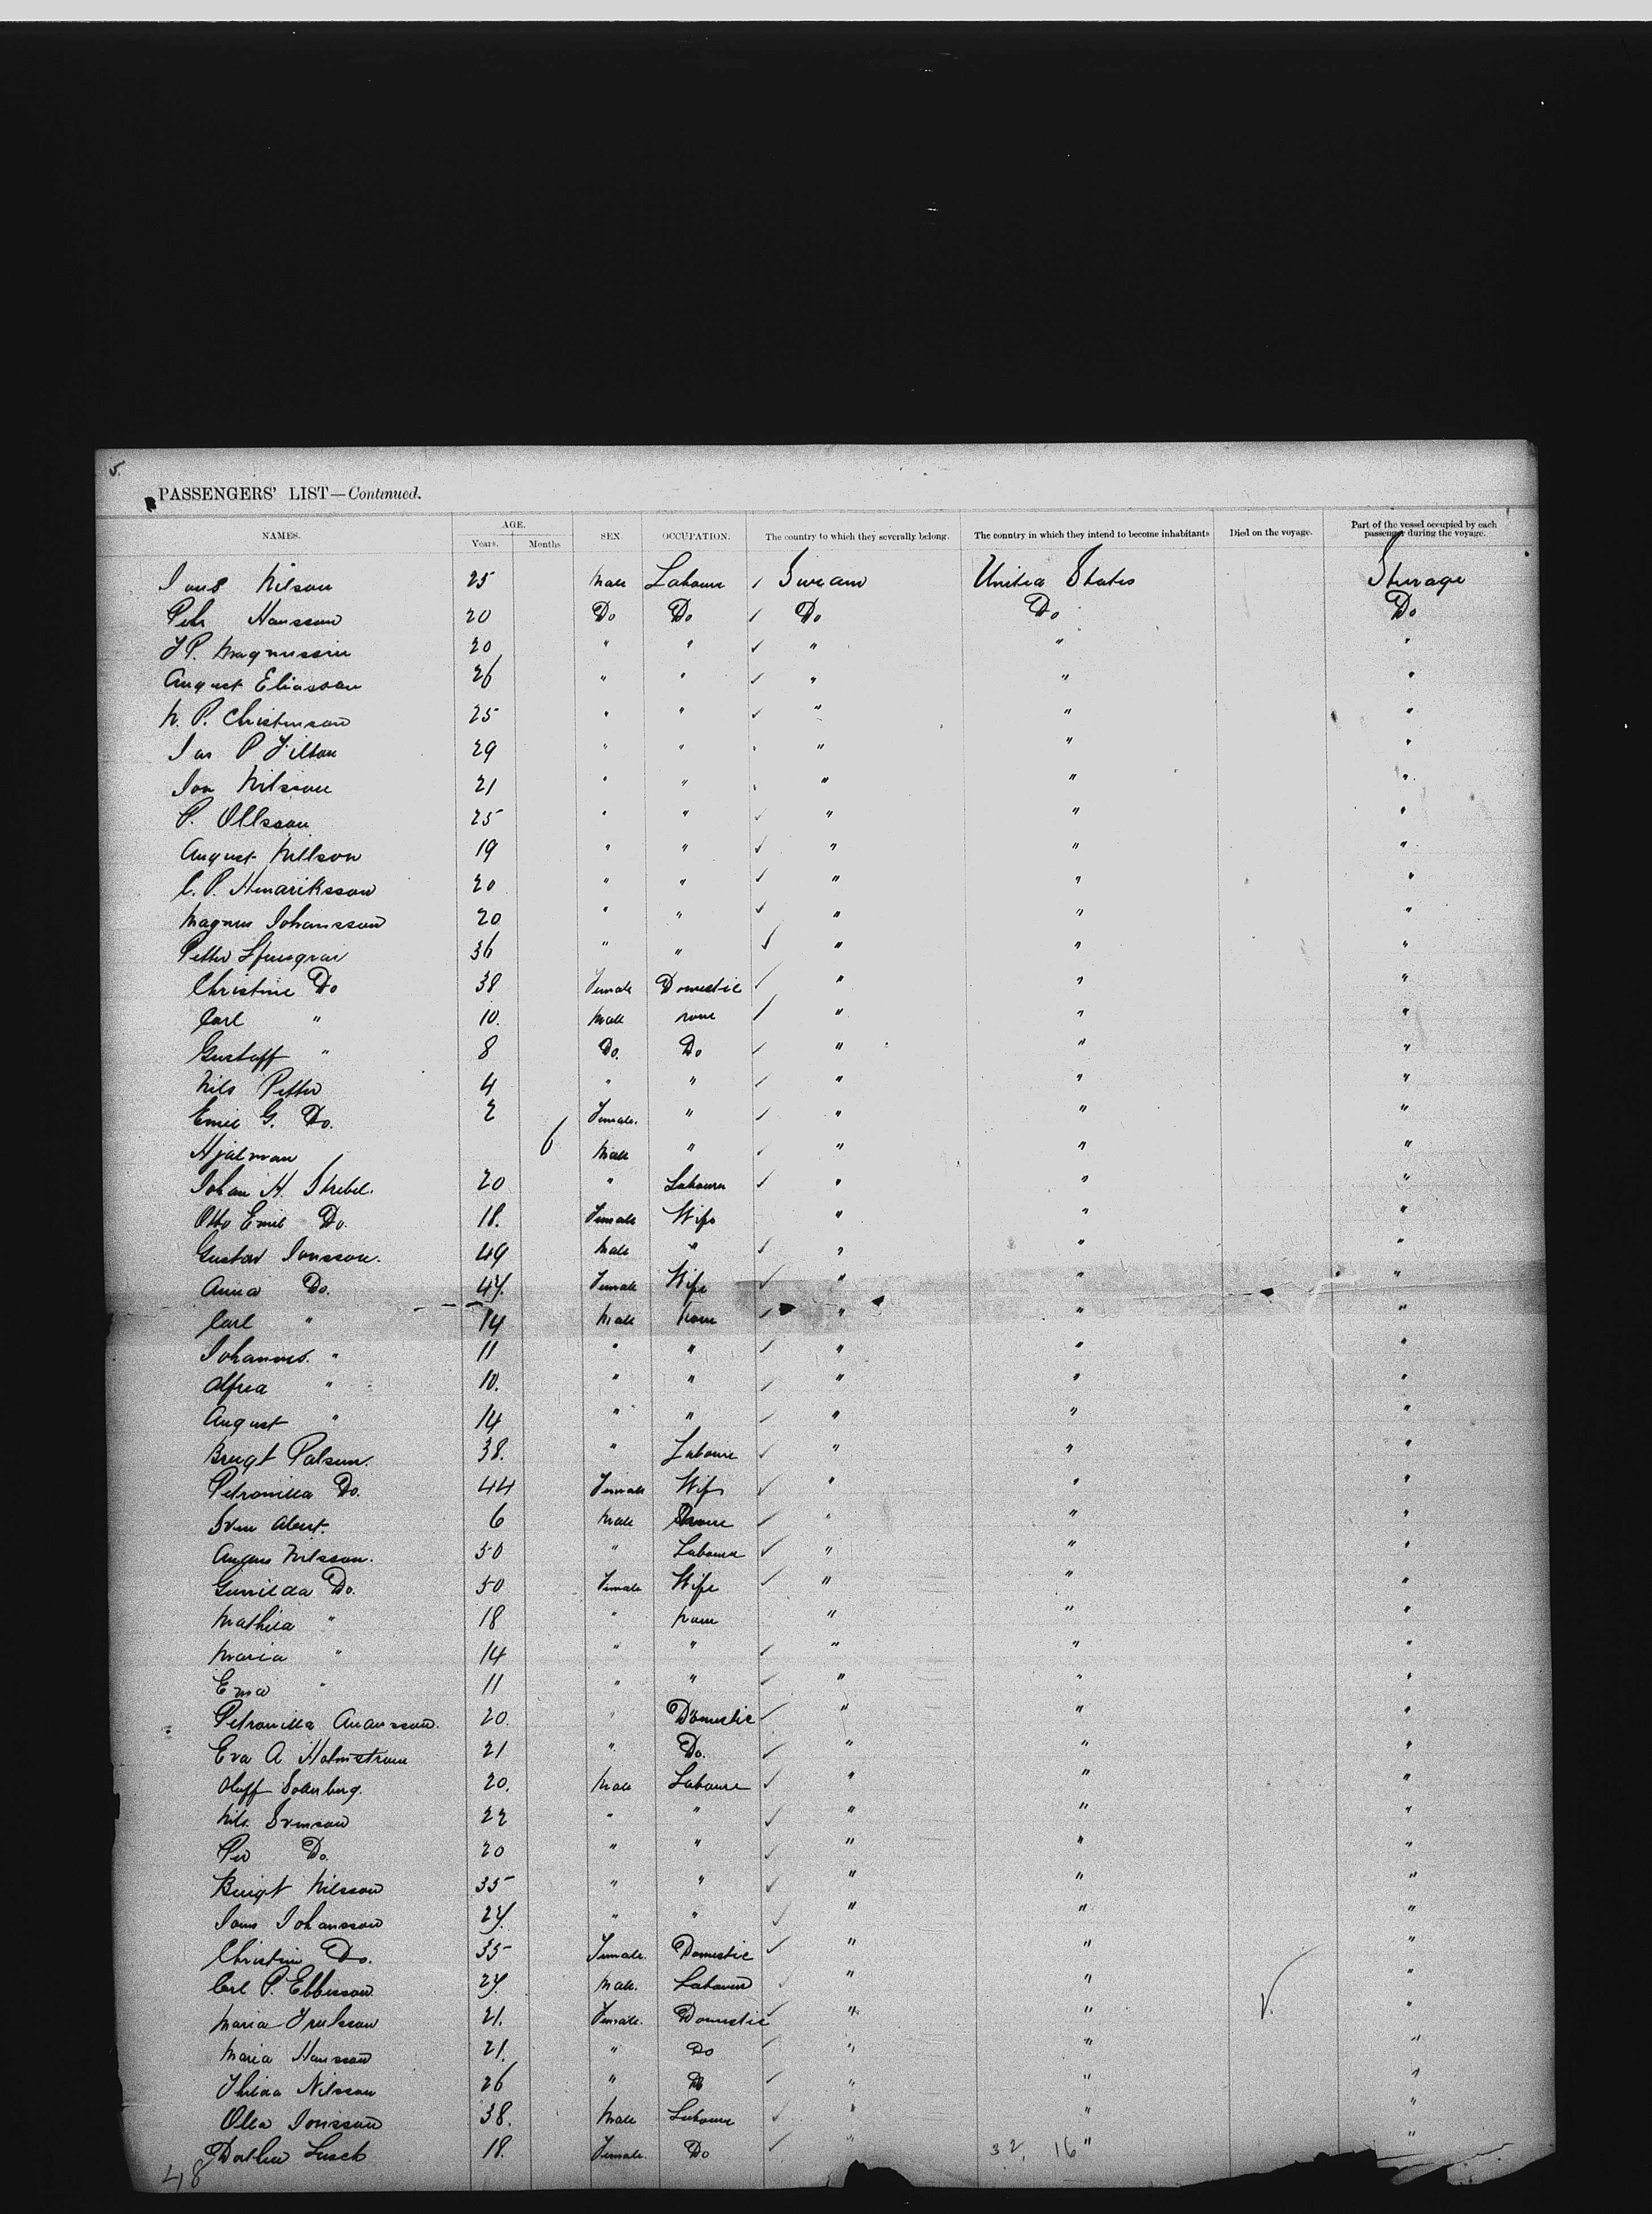 5.
PASSENGERS' LIST—Continued.
NAMES. AGE. Years. Months SEX OCCUPATION. The country to which they severally belong. The country in which they intend to become inhabitants Died on the voyage. Part of the vessel occupied by each passenger during the voyage.
Nilson 25 Male Labourer ✓ Sweden United States Steerage
Pehr Hansson 20 Do Do ✓ Do Do Do
J P. Magnussen 20 " " ✓ " " "
August Eliasson 26 " " ✓ " " "
N. P. Christenson 25 " " ✓ " " "
P 29 " " " " "
Jon Nilsson 21 " " " " "
P. Ollsson 25 " " ✓ " " "
August Nillson 19 " " ✓ " " "
C. P. Henariksson 20 " " ✓ " " "
Magnus Johansson 20 " " ✓ " " "
Petter 36 " " ✓ " " "
Christine Do 38 Female Domestic ✓ " " "
Carl " 10. Male none ✓ " " "
Gustaff " 8 Do. Do ✓ " " "
Nils Petter 4 " " ✓ " " "
Emil G. Do. 2 Female. " ✓ " " "
Hjalmar 6 Male " ✓ " " "
Johan H. Strebel. 20 " Labourer ✓ " " "
Otto Emil Do. 18. Female Wife " " "
Gustav Jonsson. 49 Male " ✓ " " "
Anna Do. 47. Female Wife ✓ " " "
Carl " 14 Male None ✓ " " "
Johannes. " 11 " " ✓ " " "
Alfred " 10. " " ✓ " " "
August " 14 " " ✓ " " "
Brengt Palsun. 38. " Labourer ✓ " " "
Petronilla Do. 44 Female Wife ✓ " " "
Sven Albert. 6 Male None ✓ " " "
Nilsson. 50 " Labourer ✓ " " "
Gunilda Do. 50 Female Wife ✓ " " "
Mathilda " 18 " None " " "
Maria " 14 " " ✓ " " "
Erna " 11 " " ✓ " " "
Petronilla Anderson. 20. " Domestic ✓ " " "
Eva A Holmstrom 21 " Do. ✓ " " "
Oluff Soderberg. 20. Male Labourer ✓ " " "
Nils. Svenson 22 " " ✓ " " "
Per Do. 20 " " ✓ " " "
Bengt Nilsson 35 " " ✓ " " "
Johansson 27. " " ✓ " " "
Christine Do. 35 Female. Domestic ✓ " " "
Carl P. Ebbesson 27. Male. Labourer ✓ " " "
Maria Trulsson 21. Female. Domestic ✓ " " "
Maria Hansson 21. " Do ✓ " " "
Thilda Nilsson 26 " Do ✓ " " "
Olla Jonsson 38. Male Labourer ✓ " " "
18. Female. Do ✓ " 32. 16 " "
48